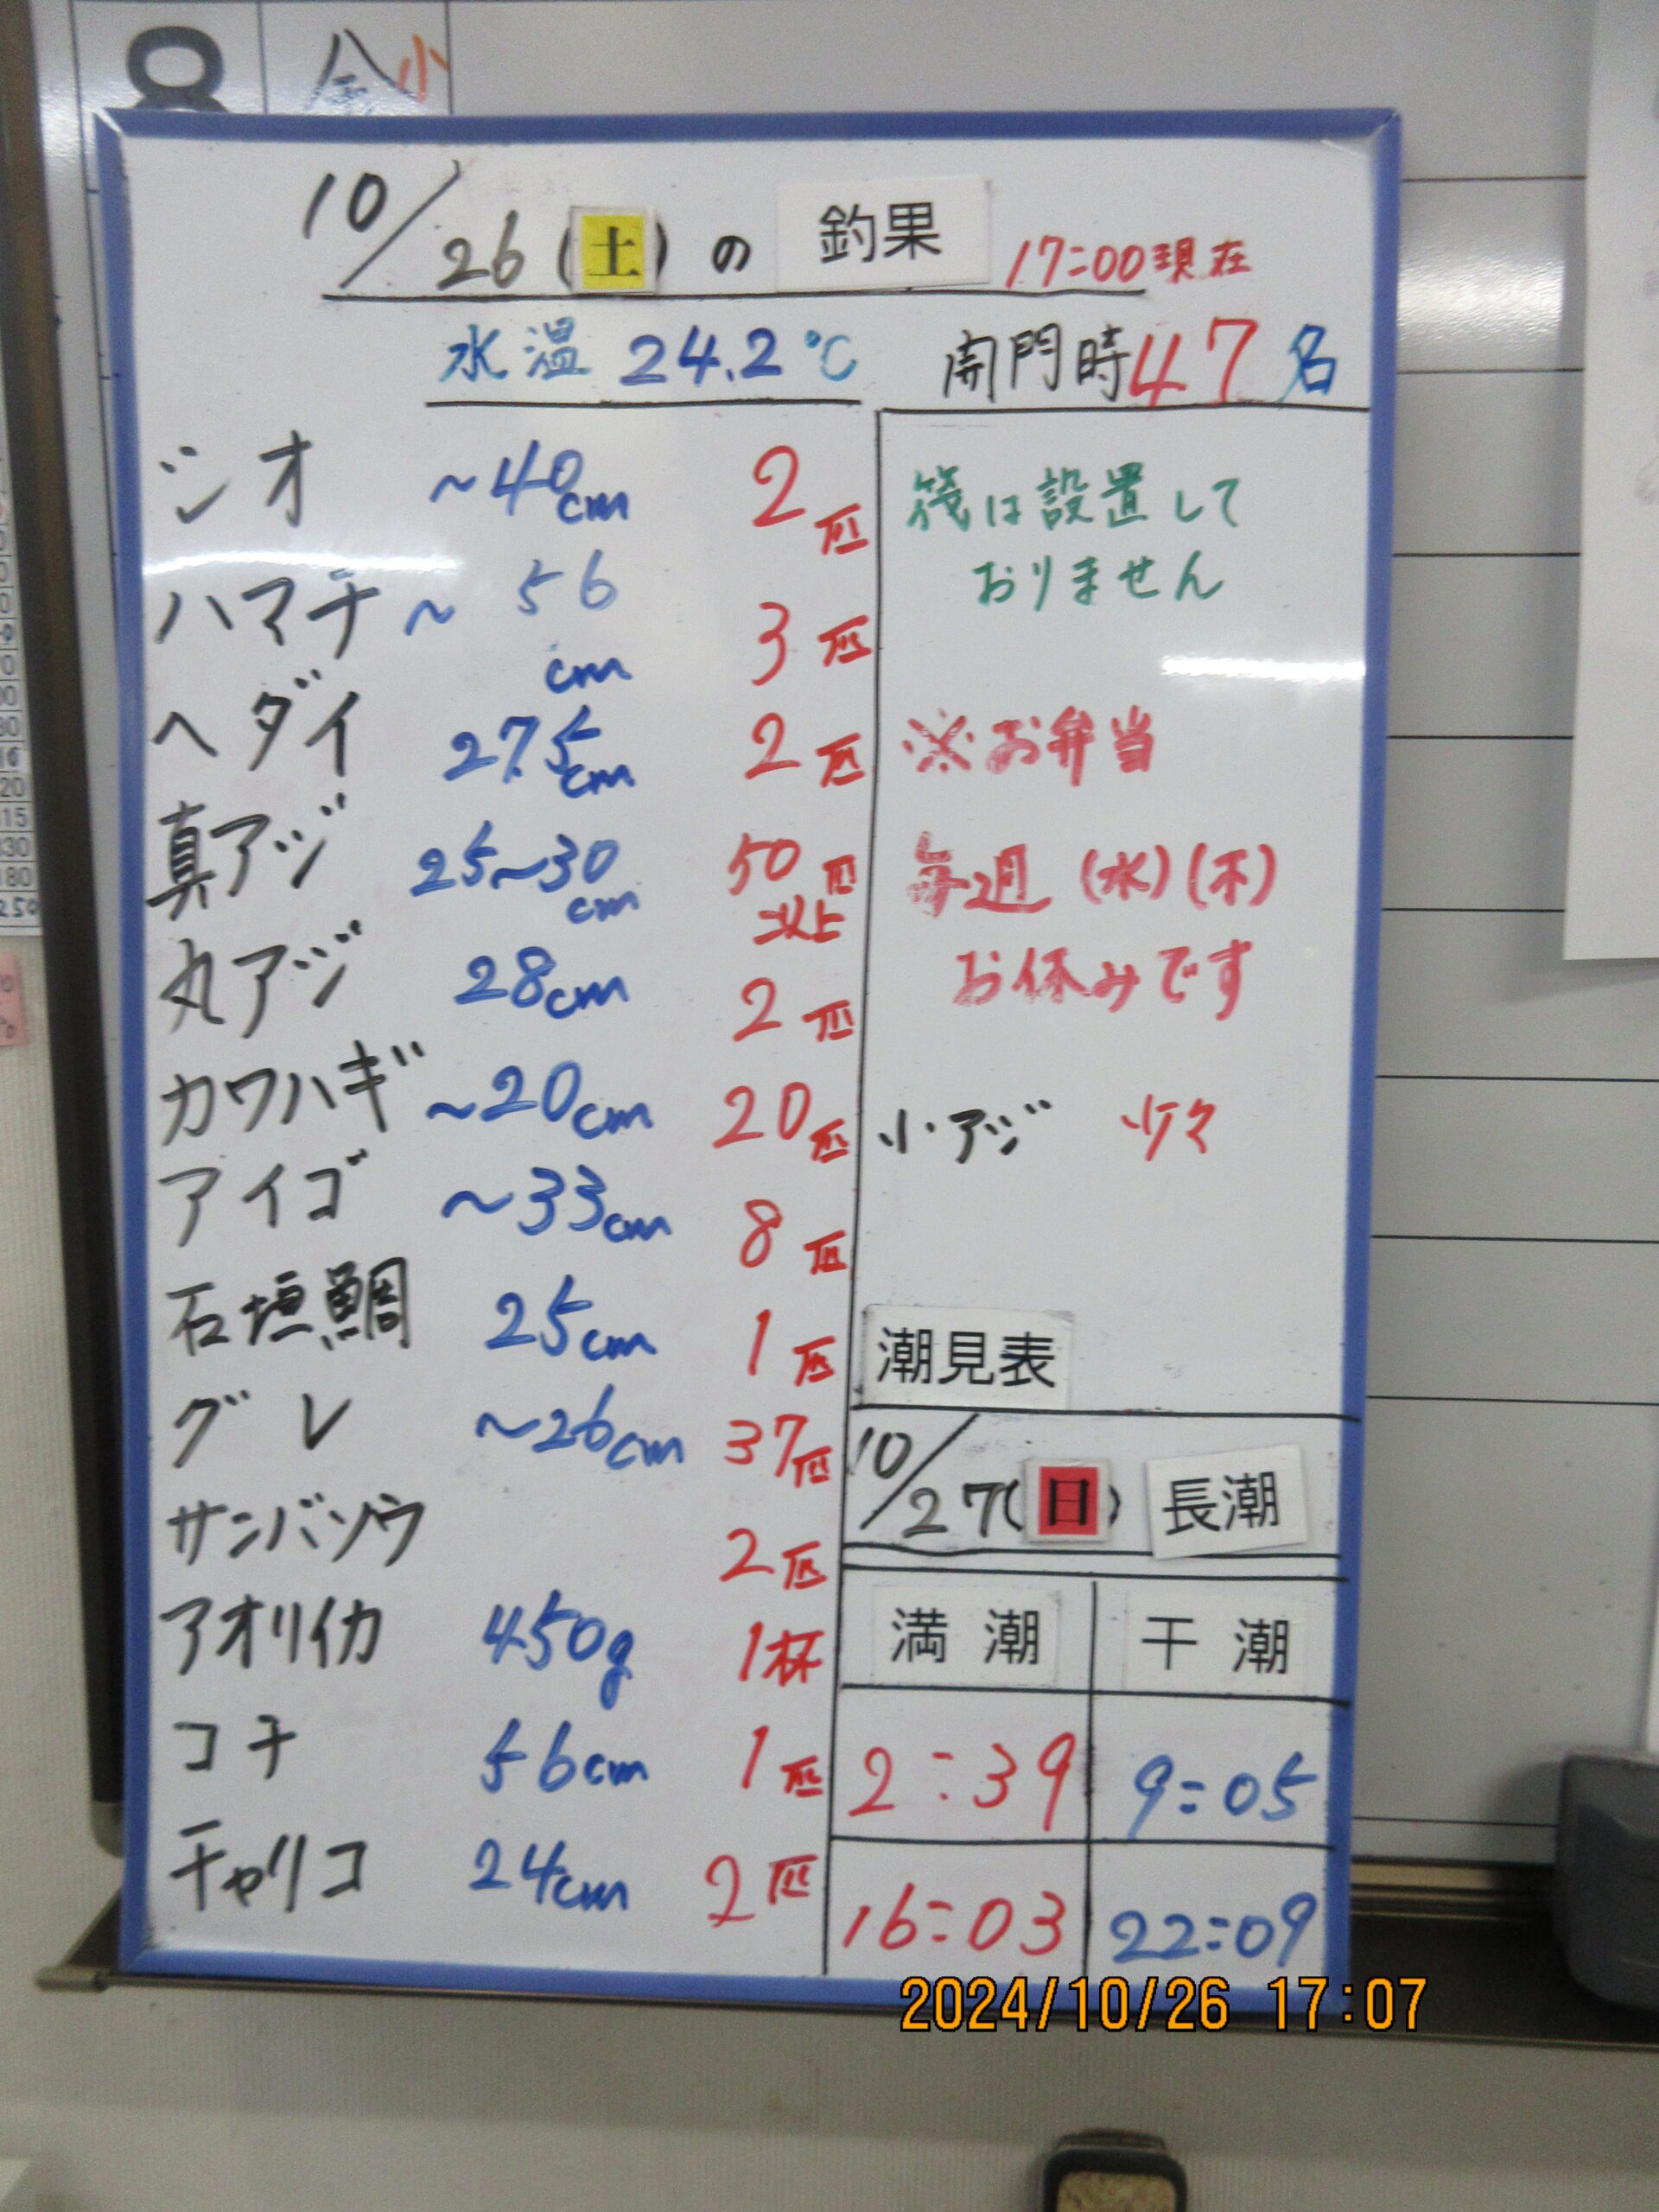 10/26(土)の 釣果 17:00現在
水温 24.2℃ 開門時47名
シオ ~40cm 2匹
ハマチ ~56cm 3匹
ヘダイ 27.5cm 2匹
真アジ 25~30cm 50匹以上
丸アジ 28cm 2匹
カワハギ ~20cm 20匹
アイゴ ~33cm 8匹
石垣鯛 25cm 1匹
グレ ~26cm 37匹
サンバソウ 2匹
アオリイカ 450g 1杯
コチ 56cm 1匹
チャリコ 24cm 2匹
筏は設置して
おりません
※お弁当
毎週(水)(木)
お休みです
小アジ 少々
潮見表
10/27(日) 長潮
満潮 干潮
2:39 9:05
16:03 22:09
2024/10/26 17:07